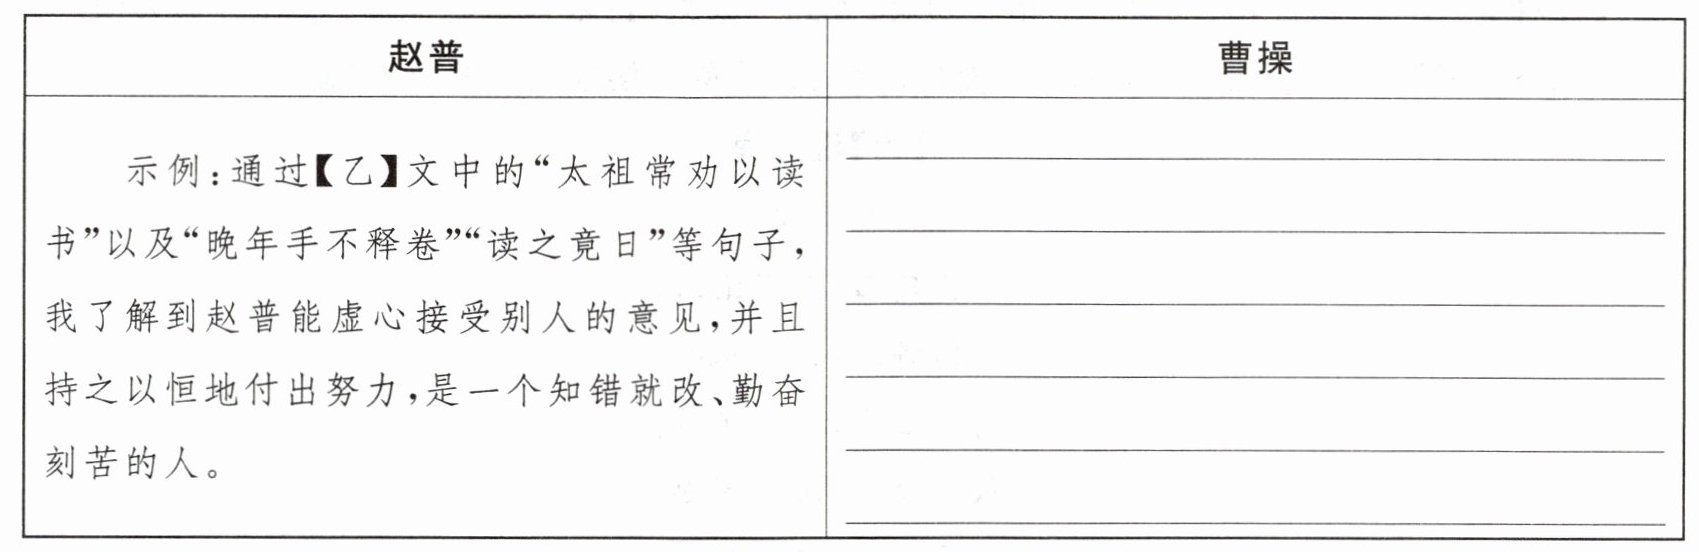 赵普
曹操
示例：通过【乙】文中的“太祖常劝以读
书”以及“晚年手不释卷”“读之竟日”等句子，
我了解到赵普能虚心接受别人的意见，并且
持之以恒地付出努力，是一个知错就改、勤奋
刻苦的人。